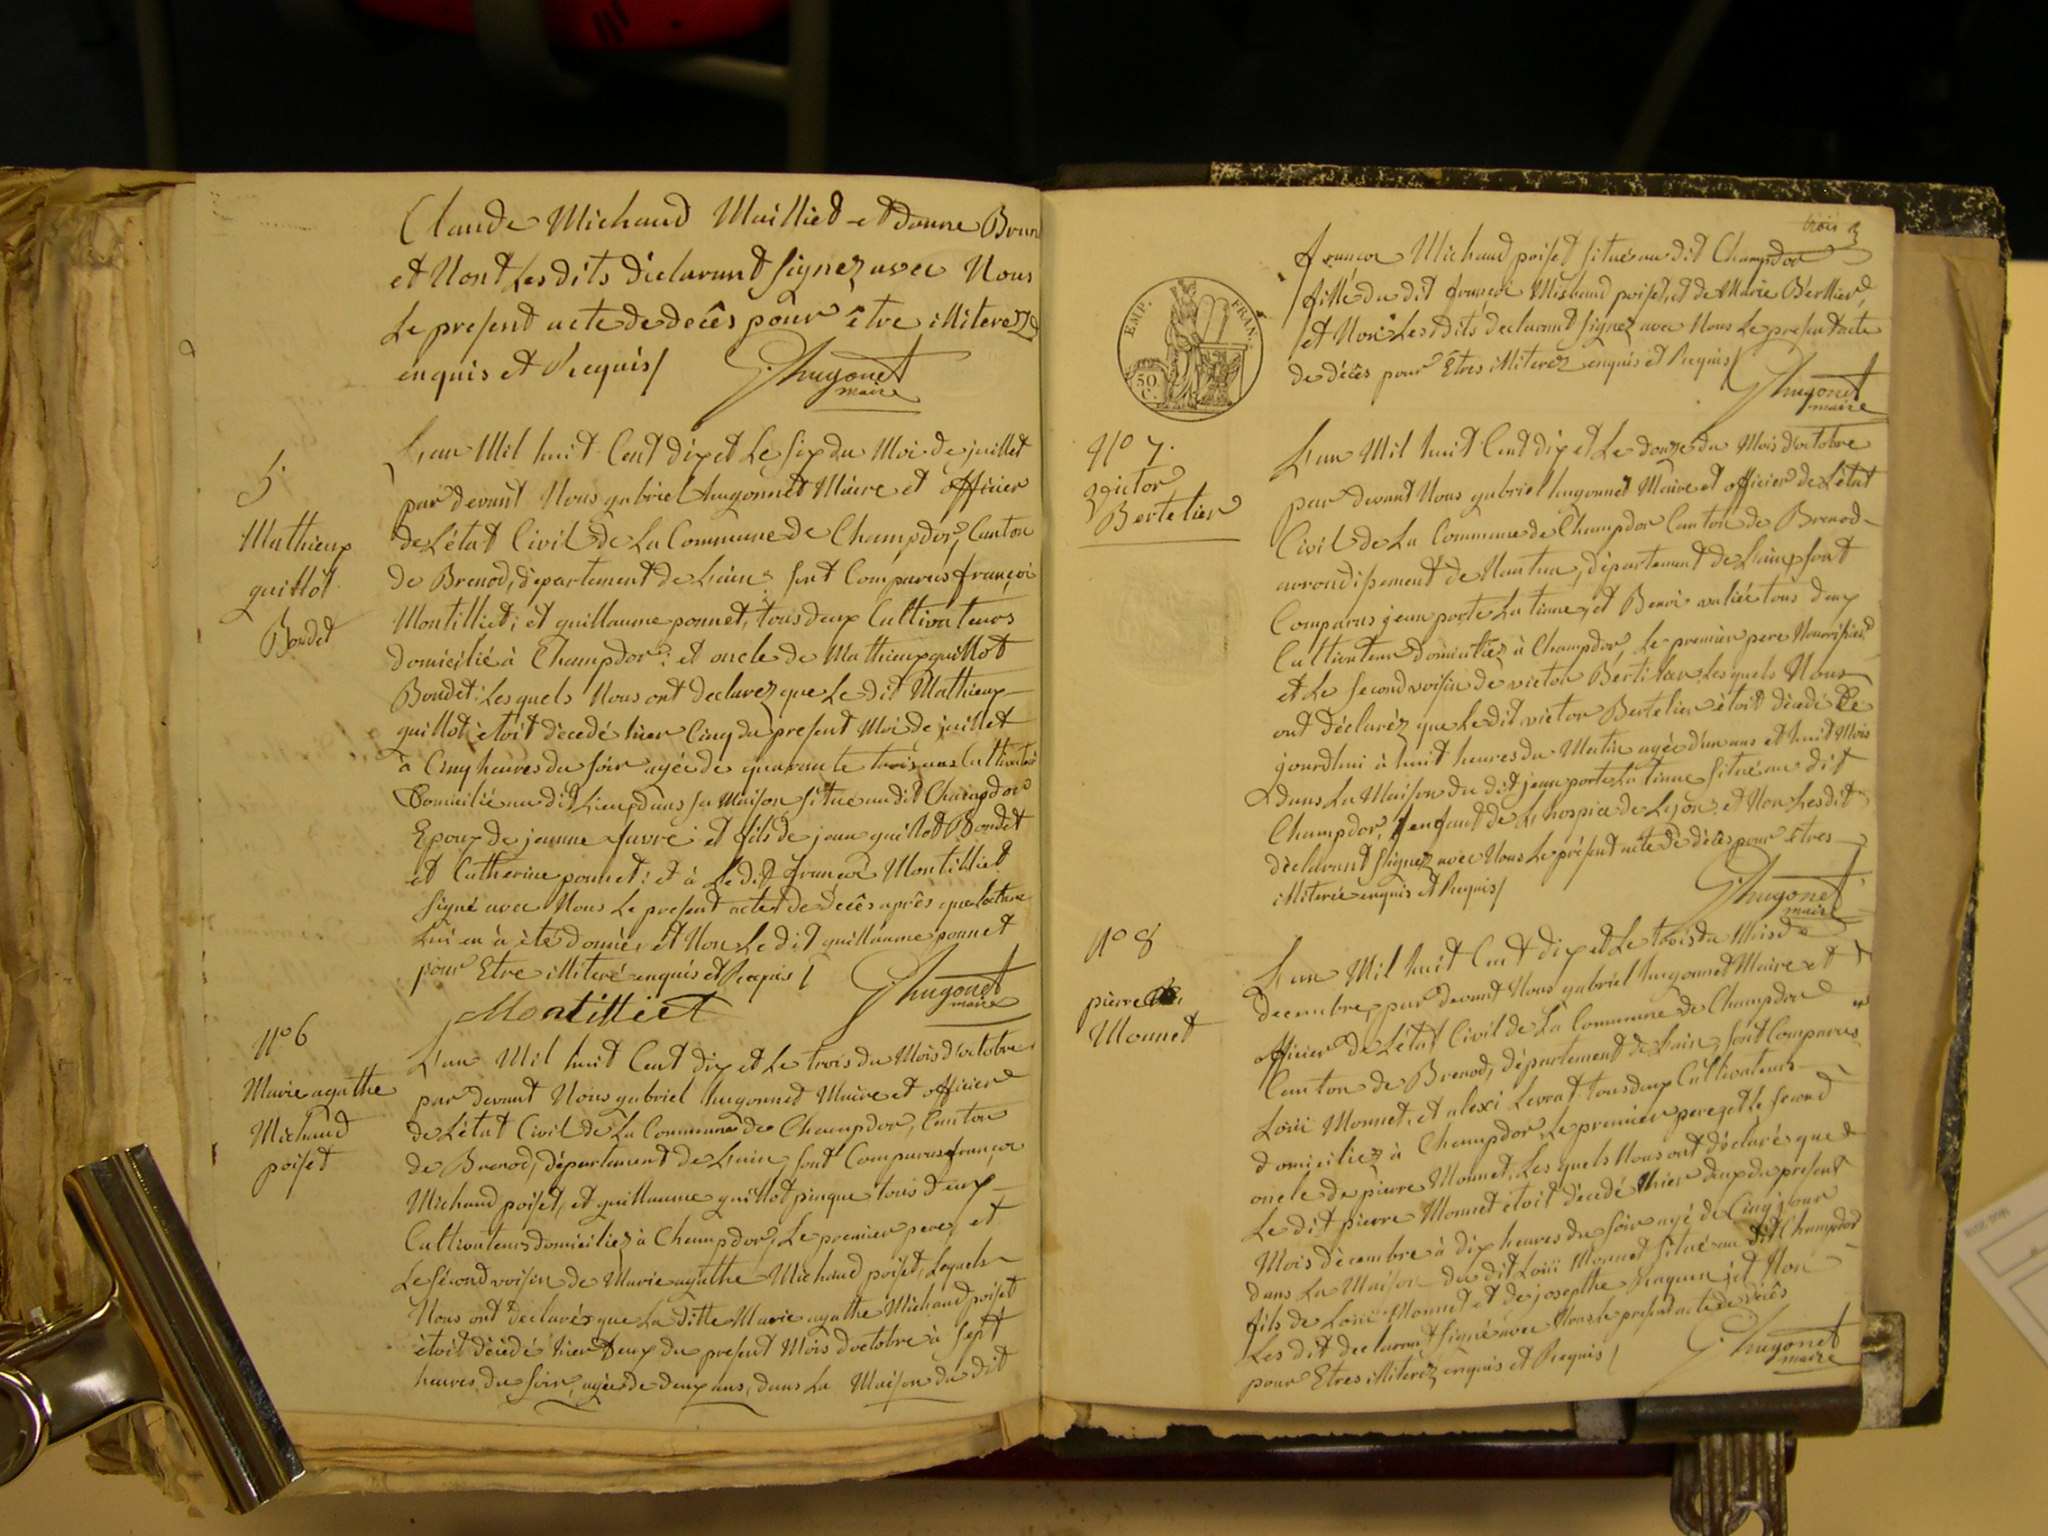 Claude Michaud Mailliet et donne Brun
et Nont Les dits déclarant signez avec Nous
Le present acte de decês pour être illiterez
enquis et Requis/
G. hugonet
maire
5.
Mathieux
guillot
Bondet
L'an Mil huit Cent dix et Le six du Moi de juillet
par devant Nous gabriel hugonnet Maire et officier
de L'état Civil de La Commune de Champdor, Canton
de Brenod, département de L'ain: sont Comparus françoi
Montilliet; et guillaume ponnet, tous deux Cultivateurs
domicilié à Champdor: et oncle de Mathieux guillot
Bondet: Les quels Nous ont declarez que Le dit Mathieux
guillot ètoit dècedé hier Cinq du present Moi de juillet
à Cinq heures du soir agée de quarante trois ans Cultivateur
Domicilié au dit Lieu, dans sa Maison situé au dit Champdor
Epoux de jeanne favre: et fils de jean guillot Bondet
et Catherine ponnet: et à Le dit françoi Montilliet
signé avec Nous Le present acte de decês après que Lecture
Lui en à été donnée, et Non Le dit guillaume ponnet
pour Etre illiteré enquis et Requis/
G. hugonet
maire
Montilliet
N° 6
Marie agathe
Michaud
poiset
L'an Mil huit Cent dix et Le trois du Mois d'octobre
par devant Nous gabriel hugonnet Maire et officier
de L'état Civil de La Commune de Champdor, Canton
de Brenod, département de L'ain, sont Comparus françoi
Michaud poiset, et guillaume guillot pinque tous deux
Cultivateurs domiciliez à Champdor, Le premier pere, et
Le sécond voisin de Marie agathe Michaud poiset, Lequels
Nous ont declarés que La ditte Marie agathe Michaud poiset
ètoit décedé hier deux du present Mois d'octobre à sept
heures du soir, agée de deux ans, dans La Maison du dit
trois 3
françoi Michaud poiset situé au dit Champdor
fille du dit françoi Michaud poiset, et de Marie Berllier,
et Non Les dits declarant signez avec Nous Le present acte
de décês pour Etres illiterez enquis et Requis/
G. hugonet
maire
EMP. FRAN.
50
C.
N° 7.
victor
Bertelier
L'an Mil huit Cent dix et Le douze du Mois d'octobre
par devant Nous gabriel hugonnet Maire et officier de L'état
Civil de La Commune de Champdor Canton de Brenod
arrondissement de Nantua, département de L'ain, sont
Comparus jean porte La tinne, et Benoi valiée tous deux
Cultivateur domiciliez à Champdor, Le premier pere Nourrisier
et Le second voisin de victor Bertilier, Les quels Nous
ont déclaréz que Le dit victor Bertelier ètoit dècedé Ce
jourdhui à huit heures du Matin agée d'un ans et huit Mois
dans La Maison du dit jean porte La tinne situé au dit
Champdor, enfant de L'hospice de Lyon, et Non Les dit
declarant signez avec Nous Le présent acte de decês pour Etres
illiterée enquis et Requis/
G. hugonet
maire
N° 8
pierre
Monnet
L'an Mil huit Cent dix et Le trois du Mois de
decembre, par devant Nous gabriel hugonnet Maire et
officier de L'état Civil de La Commune de Champdor
Canton de Brenod, département de L'ain, sont Comparus
Loüi Monnet, et alexi Levrat tous deux Cultivateurs
domiciliez à Champdor, Le premier pere, et Le second
oncle de pierre Monnet, Les quels Nous ont déclarés que
Le dit pierre Monnet ètoit dècedé hier deux du present
Mois décembre à dix heures du soir agé de Cinq jour
dans La Maison du dit Loüi Monnet situé au dit Champdor
fils de Loüi Monnet et de josepthe Ragein; et Non
Les dit declarant signé avec Nous Le present acte de decês
pour Etres illiterez enquis et Requis/
G. hugonet
maire